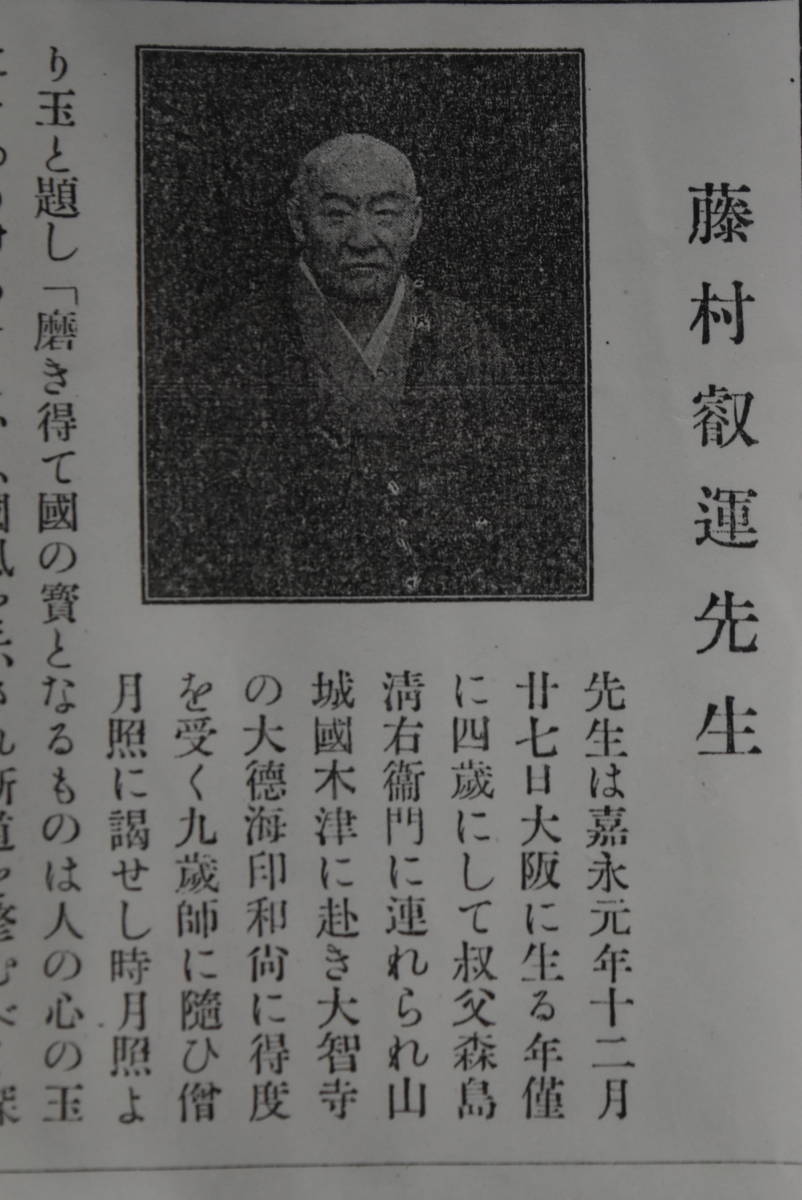 藤村叡運先生
先生は嘉永元年十二月
廿七日大阪に生る年僅
に四歲にして叔父森島
淸右衞門に連れられ山
城國木津に赴き大智寺
の大德海印和尙に得度
を受く九歲師に隨ひ僧
月照に謁せし時月照よ
り玉と題し「磨き得て國の寶となるものは人の心の玉